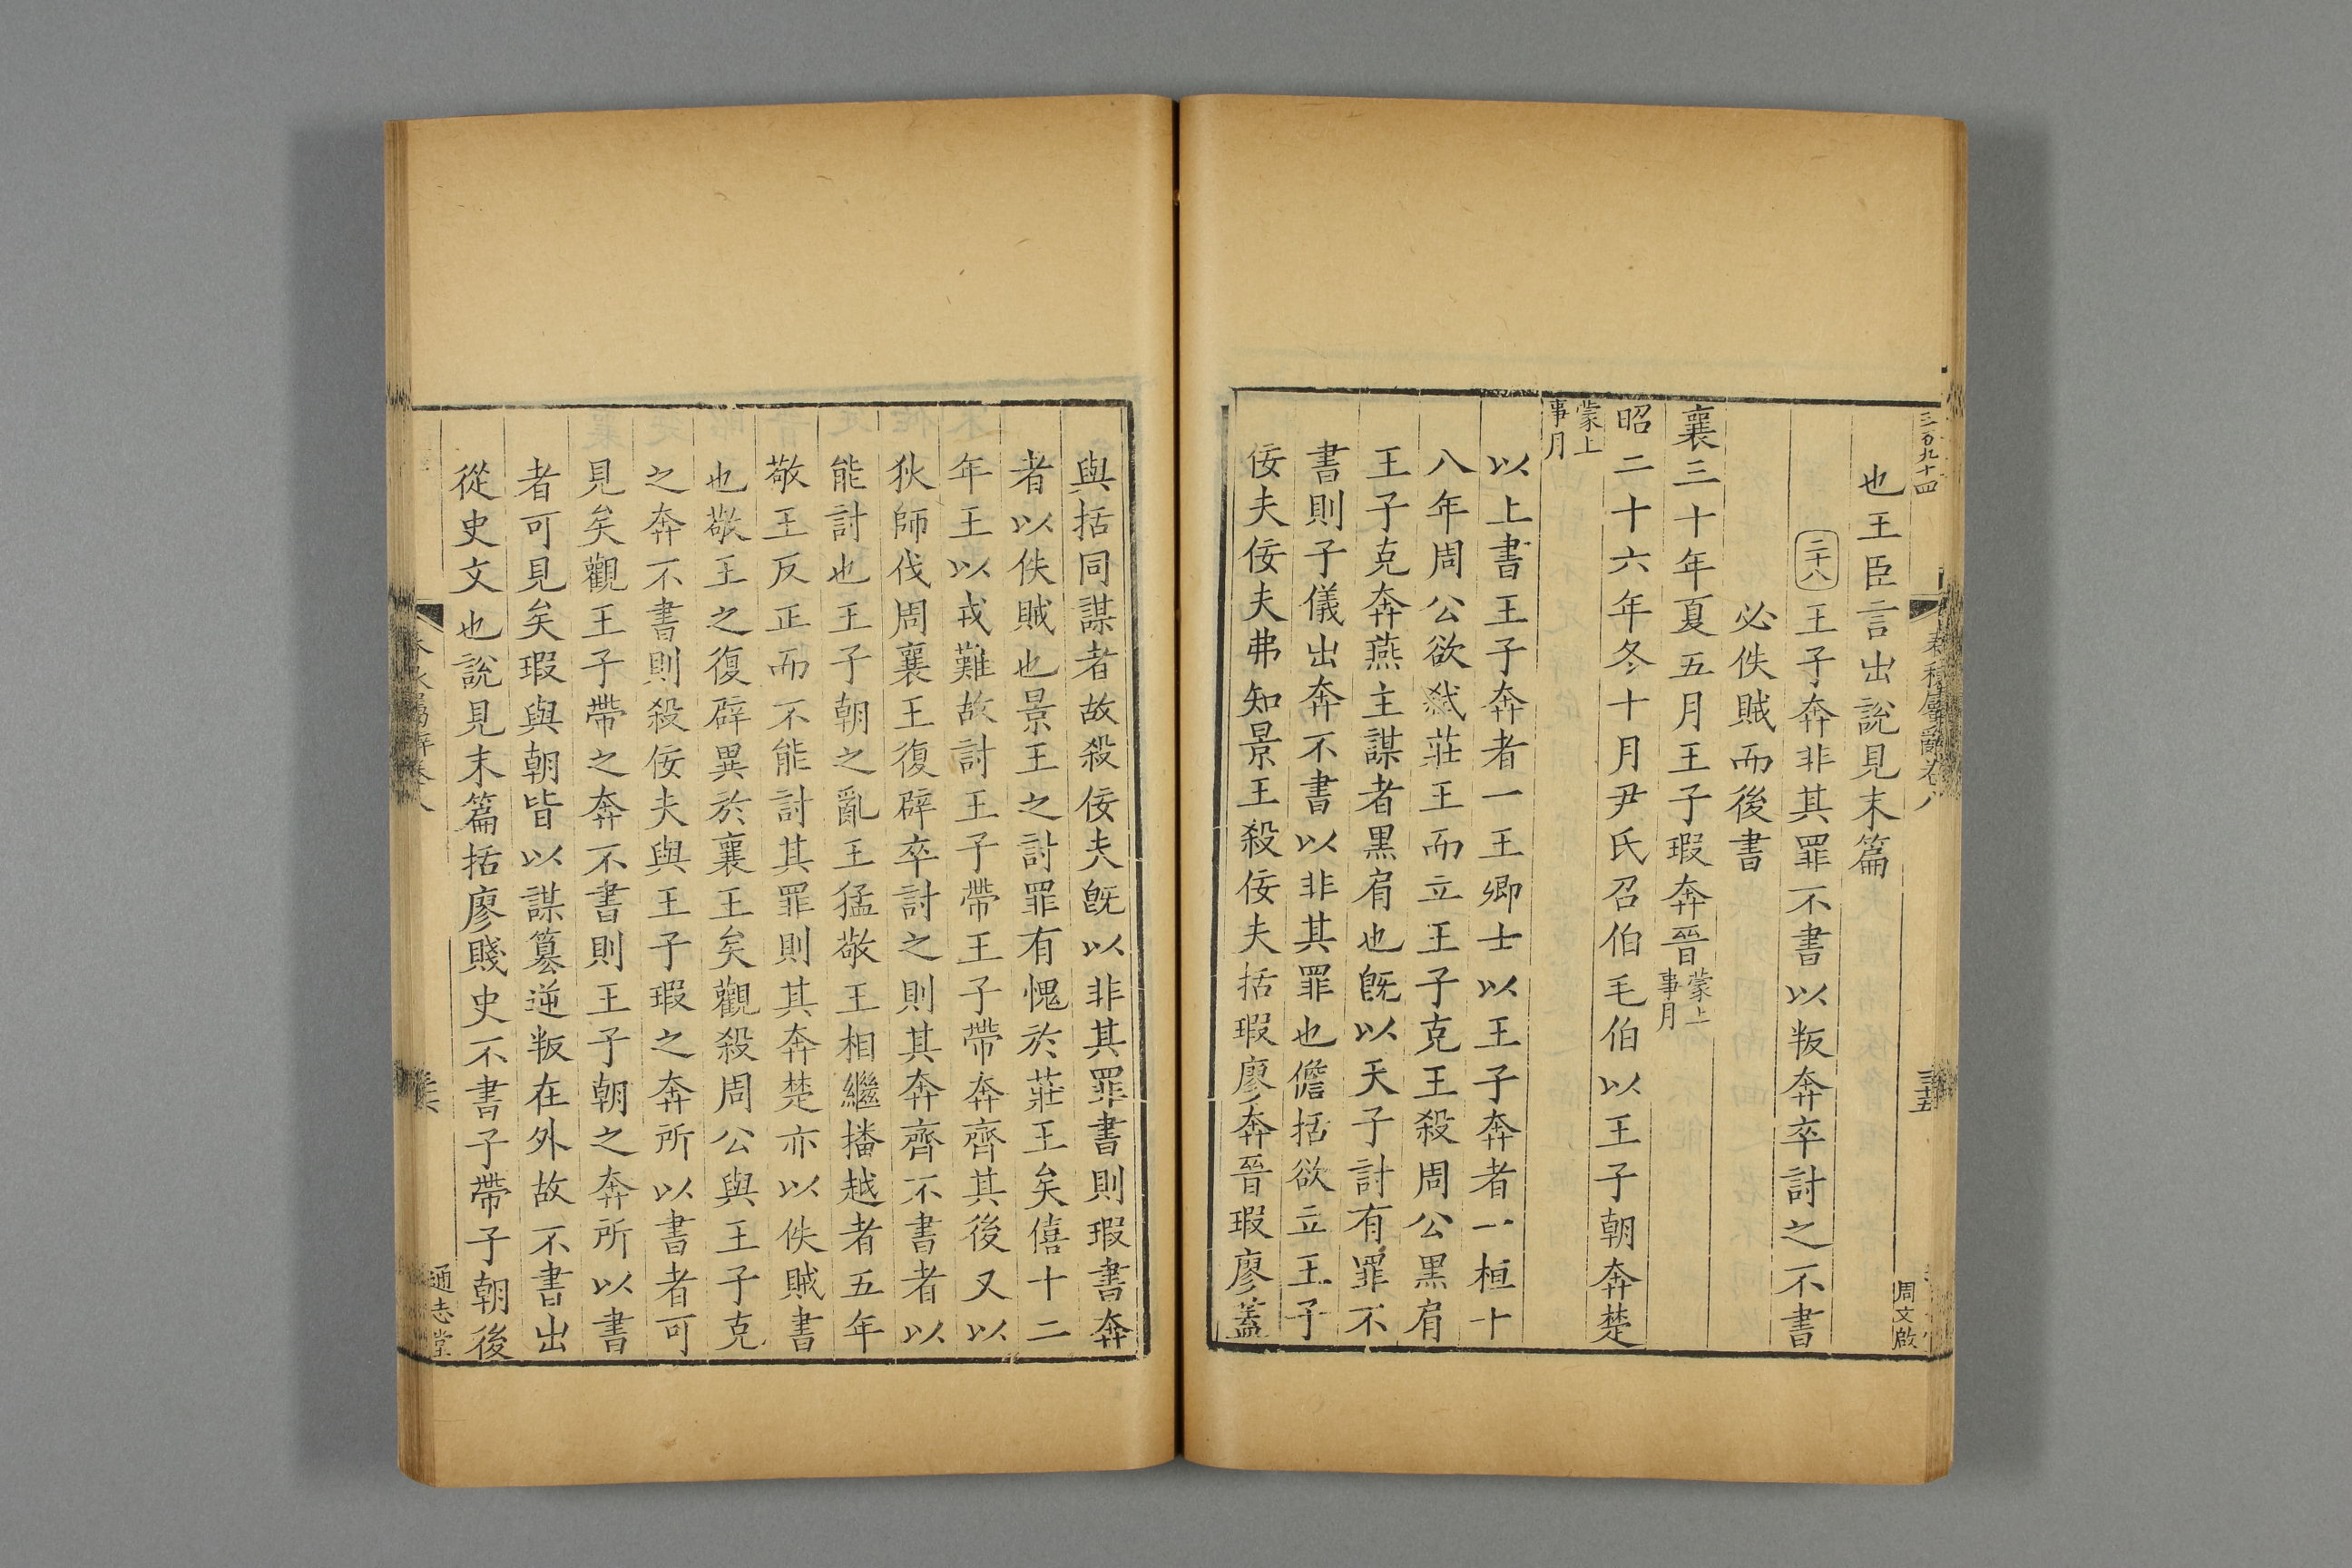 三百九十四
春秋屬辭卷八
三十五
周文啟
也王臣言出說見末篇
二十八
王子奔非其罪不書以叛奔卒討之不書
必佚賊而後書
襄三十年夏五月王子瑕奔晉蒙上事月
昭二十六年冬十月尹氏召伯毛伯以王子朝奔楚
蒙上事月
以上書王子奔者一王卿士以王子奔者一桓十
八年周公欲弒莊王而立王子克王殺周公黑肩
王子克奔燕主謀者黑肩也旣以天子討有罪不
書則子儀出奔不書以非其罪也儋括欲立王子
佞夫佞夫弗知景王殺佞夫括瑕廖奔晉瑕廖蓋
與括同謀者故殺佞夫旣以非其罪書則瑕書奔
者以佚賊也景王之討罪有愧於莊王矣僖十二
年王以戎難故討王子帶王子帶奔齊其後又以
狄師伐周襄王復辟卒討之則其奔齊不書者以
能討也王子朝之亂王猛敬王相繼播越者五年
敬王反正而不能討其罪則其奔楚亦以佚賊書
也敬王之復辟異於襄王矣觀殺周公與王子克
之奔不書則殺佞夫與王子瑕之奔所以書者可
見矣觀王子帶之奔不書則王子朝之奔所以書
者可見矣瑕與朝皆以謀簒逆叛在外故不書出
從史文也說見末篇括廖賤史不書子帶子朝後
春秋屬辭卷八
三十六
通志堂